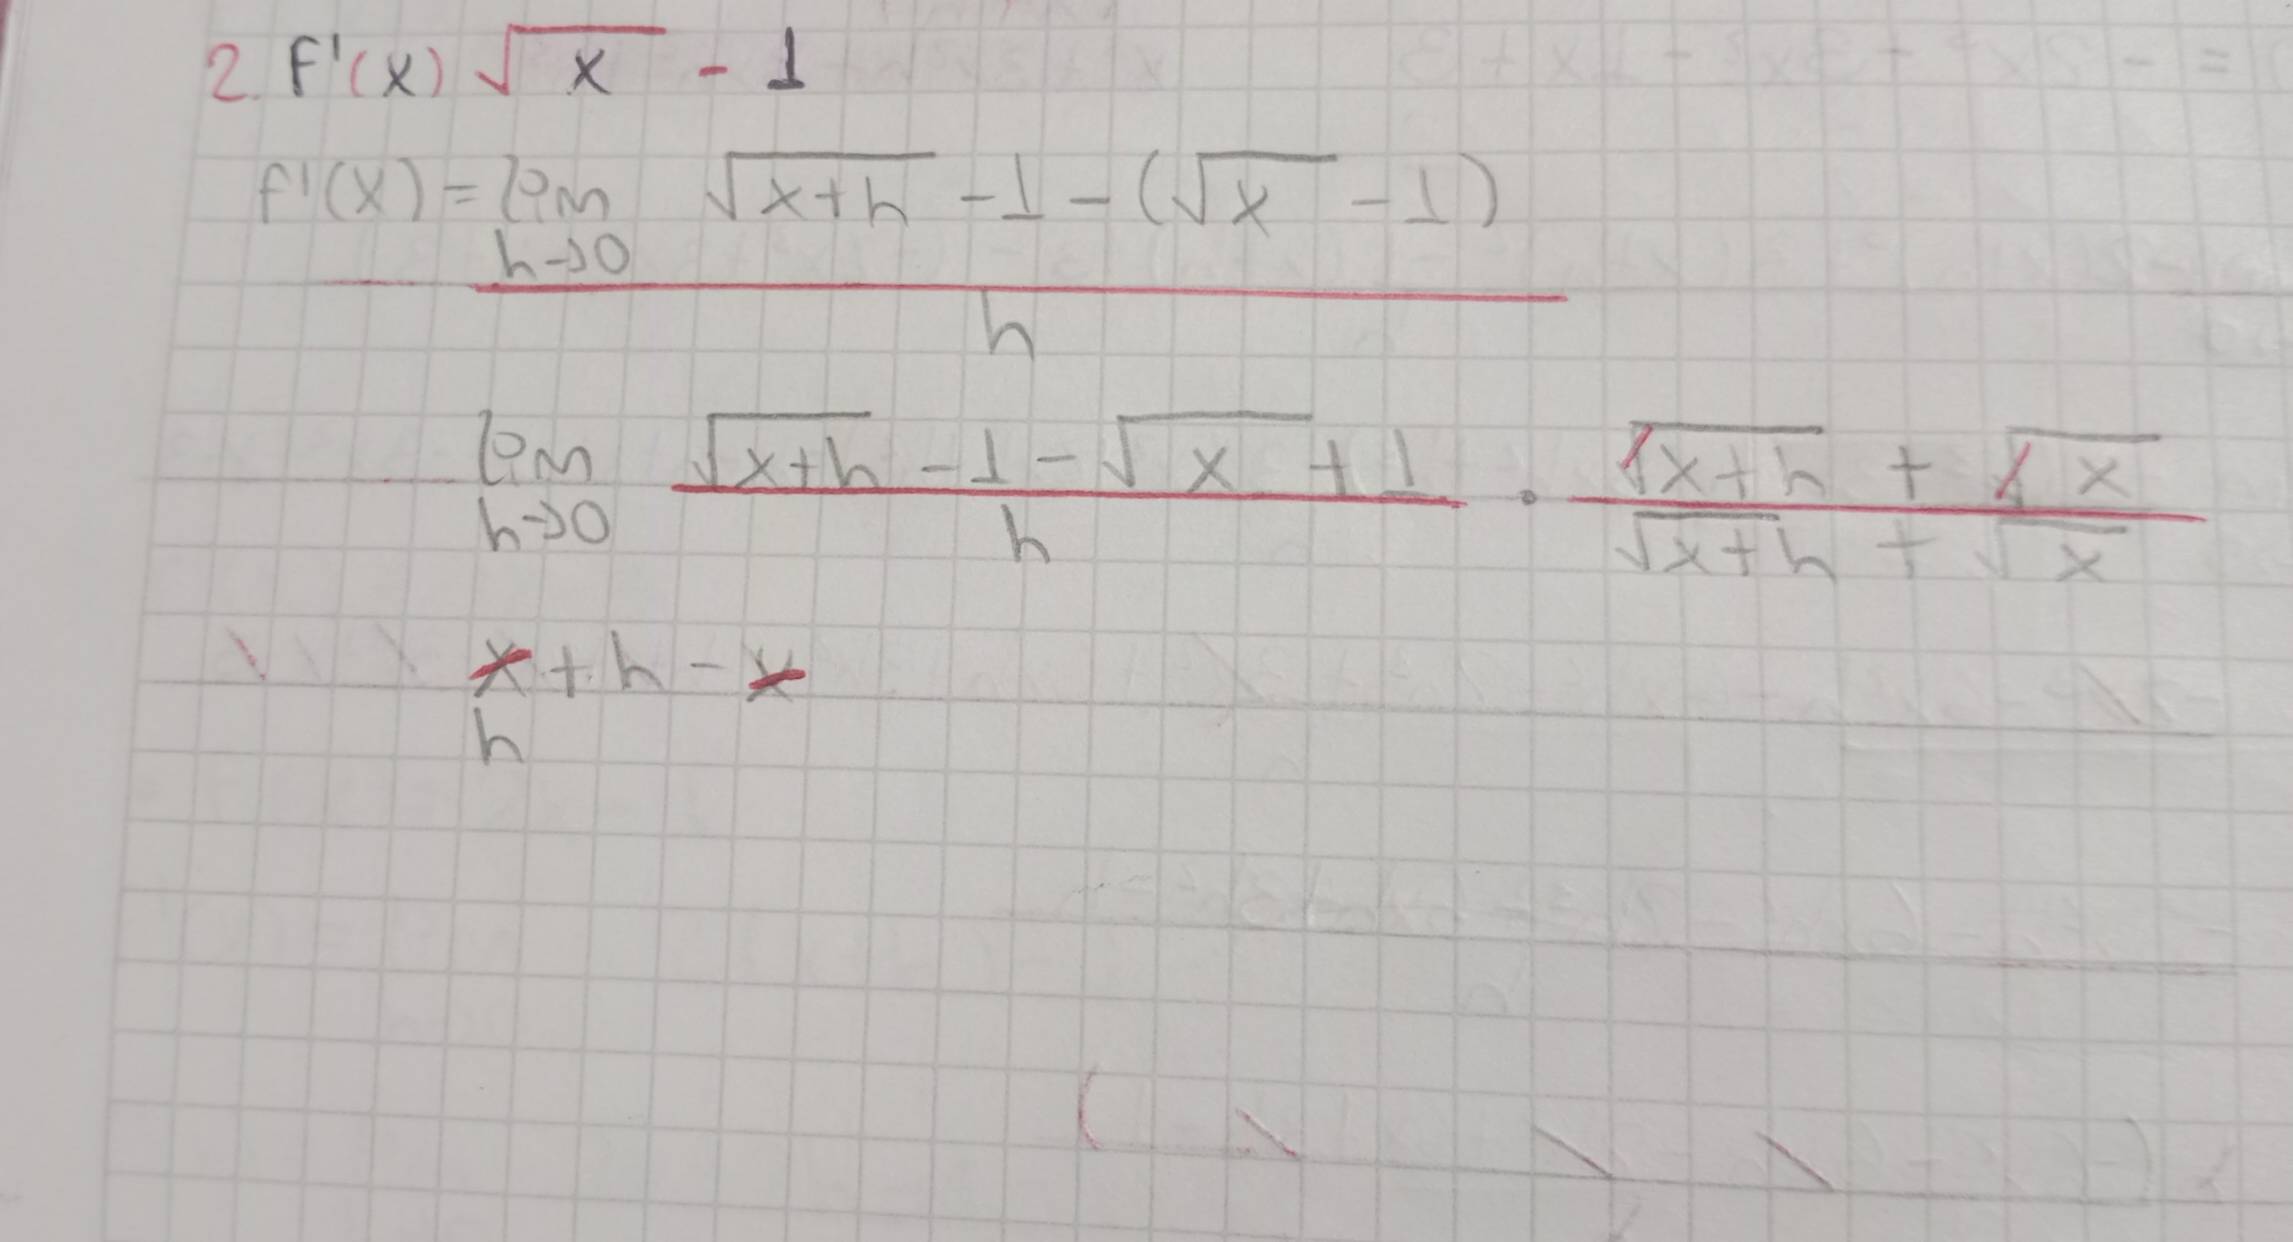 2. f'(x) √x - 1
f'(x) = lim h→0 √x+h - 1 - (√x - 1)
h
lim h→0 √x+h - 1 - √x + 1 / h · √x+h + √x / √x+h + √x
x + h - x
h